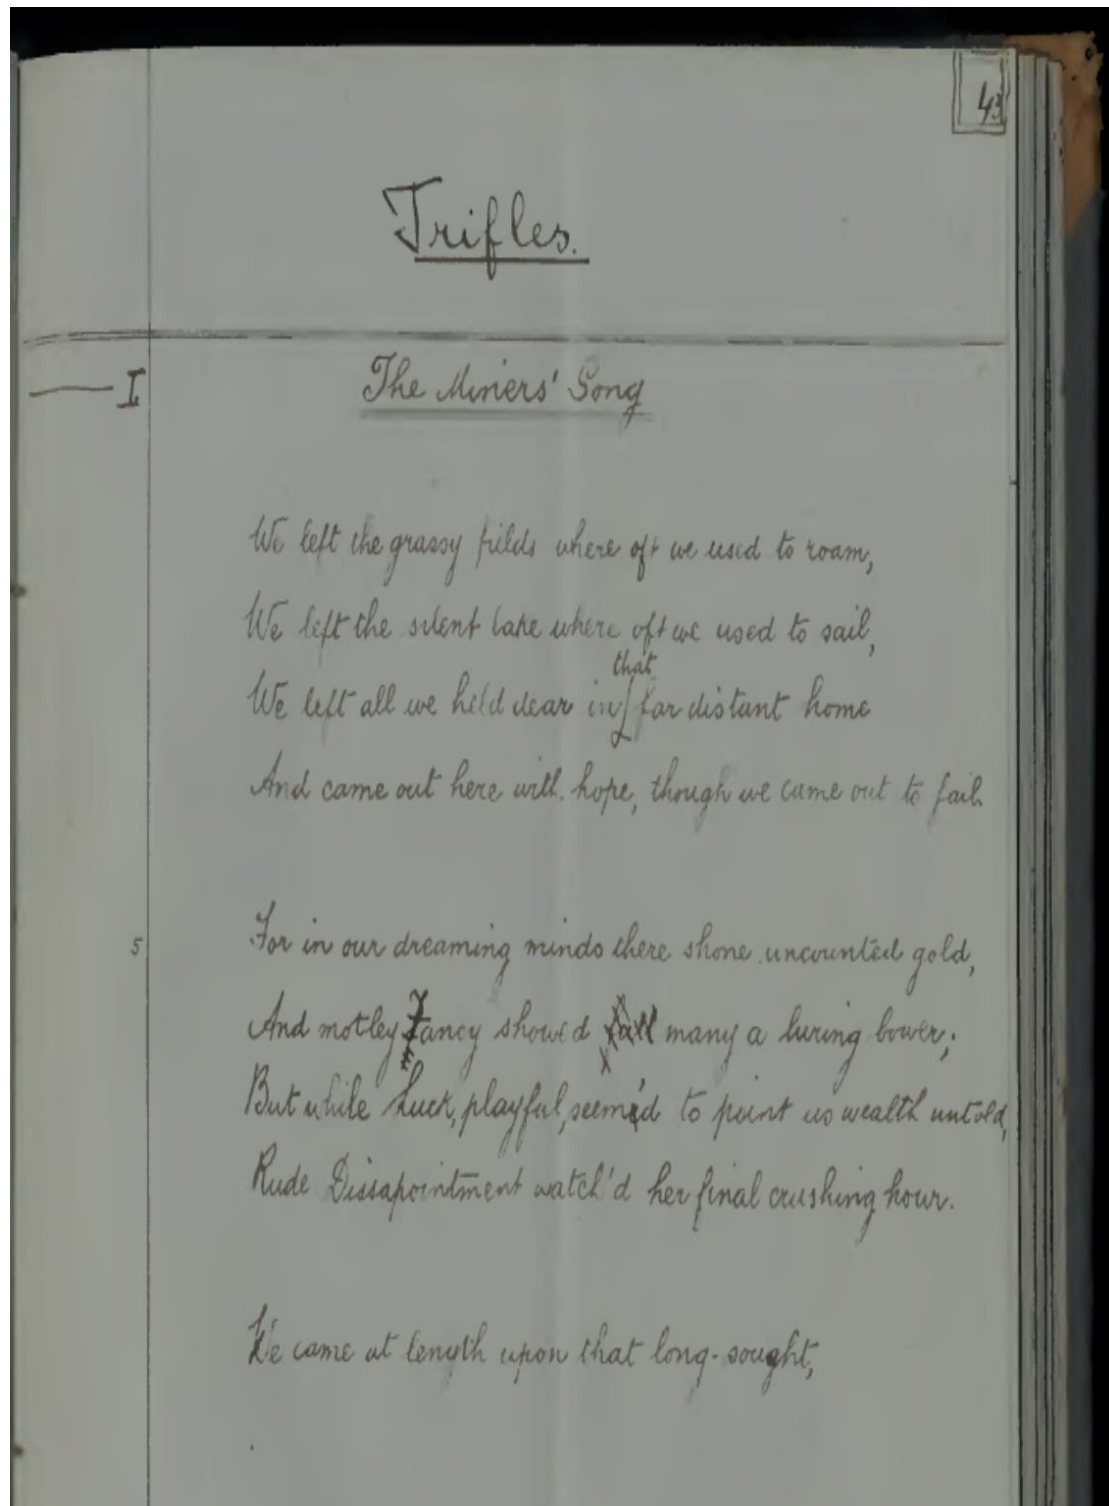 43
Trifles.
I
The Miners' Song
We left the grassy fields where oft we used to roam,
We left the silent lake where oft we used to sail,
that
We left all we held dear in far distant home
And came out here with hope, though we came out to fail.
5
For in our dreaming minds there shone uncounted gold,
And motley Fancy showed many a luring bower;
But while Luck, playful, seem'd to point us wealth untold,
Rude Dissapointment watch'd her final crushing hour.
We came at length upon that long-sought,